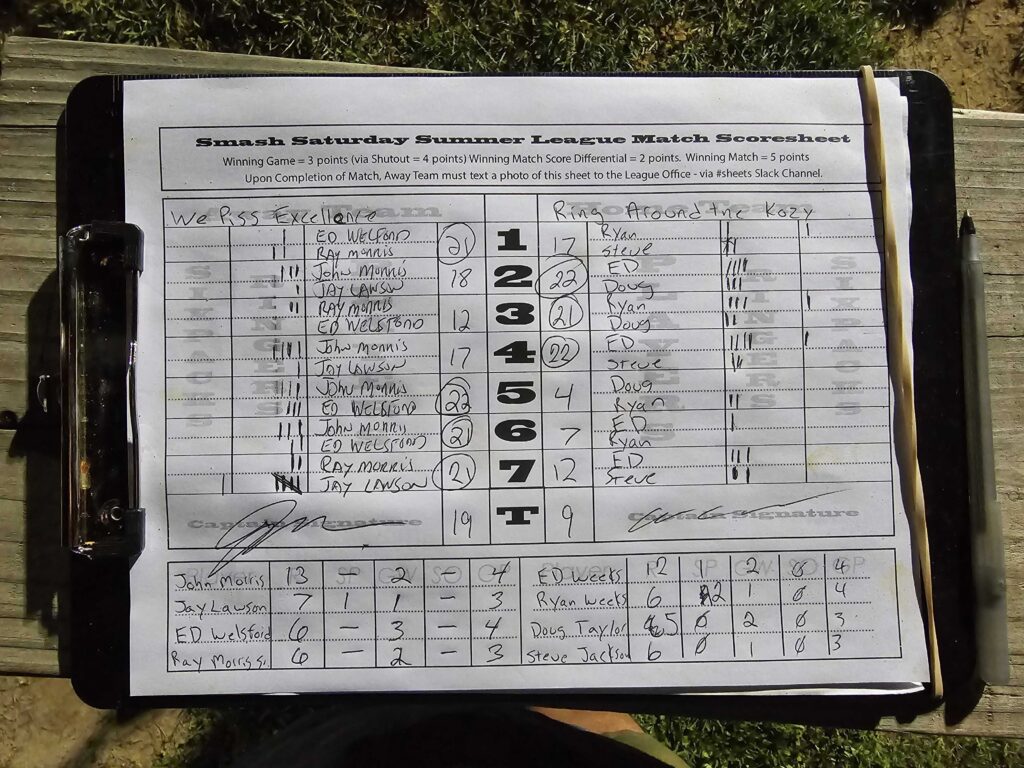 Smash Saturday Summer League Match Scoresheet
Winning Game = 3 points (via Shutout = 4 points) Winning Match Score Differential = 2 points. Winning Match = 5 points
Upon Completion of Match, Away Team must text a photo of this sheet to the League Office - via #sheets Slack Channel.
We Piss Excellence Ring Around the Kozy
ED WELFOND 21 1 17 Ryan
RAY MORRIS Steve
John Morris 18 2 22 ED
JAY LAWSON Doug
RAY MORRIS 12 3 21 Ryan
ED WELSFOND Doug
John Morris 17 4 22 ED
JAY LAWSON Steve
John Morris 22 5 4 Doug
ED WELSFOND Ryan
John Morris 21 6 7 ED
ED WELSFOND Ryan
RAY MORRIS 21 7 12 ED
JAY LAWSON Steve
Captain Signature 19 T 9 Captain Signature
John Morris 13 – 2 – 4 ED Weeks 12 1 2 0 4
Jay Lawson 7 1 1 – 3 Ryan Weeks 6 2 1 0 4
ED Welsford 6 – 3 – 4 Doug Taylor 5 0 2 0 3
Ray Morris Sr. 6 – 2 – 3 Steve Jackson 6 0 1 0 3